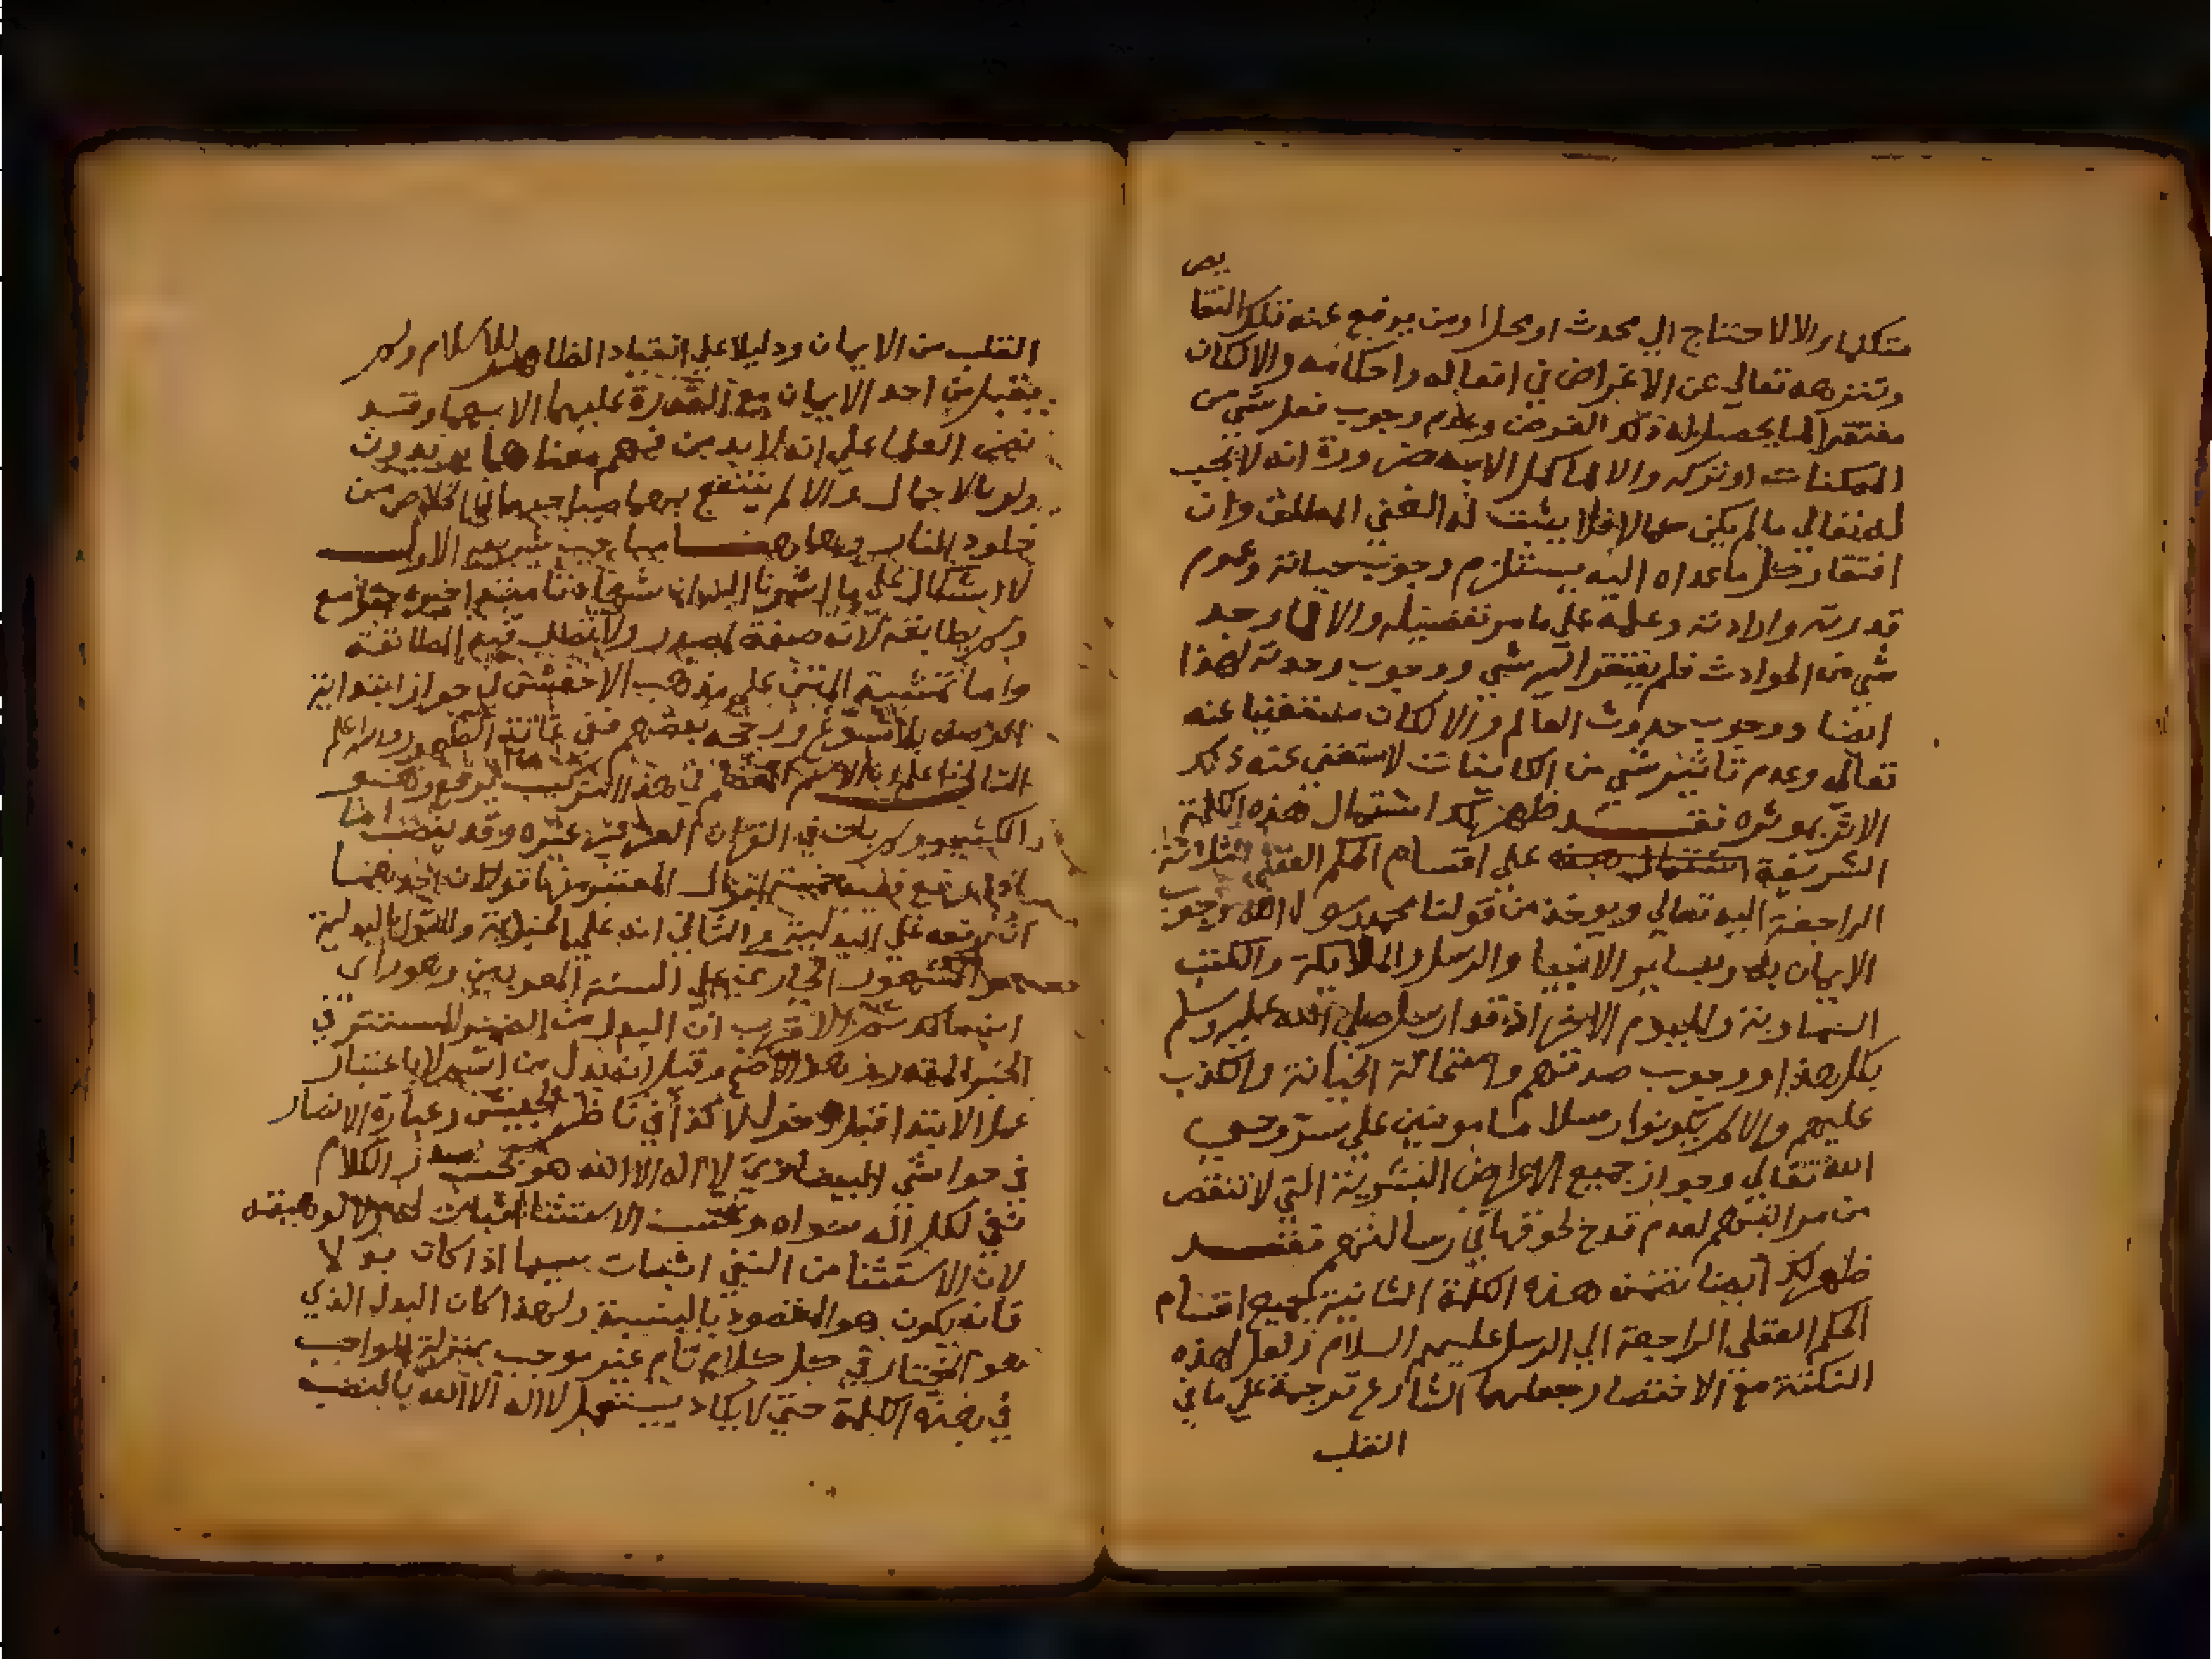 يص
متكلما والا لاحتاج الي محدث او محل او من يرفع عنه تلك النقا
وتنزهه تعالي عن الاغراض في افعاله واحكامه والا لكان
مفتقرا لما يحصل له ذلك الغرض وعدم وجوب فعل شي من
الممكنات او تركه والا لما كمل الابه ضرورة انه لا يجب
له تعالي ما لم يكن كمالا فلا يثبت له الغني المطلق وان
افتقار كل ما عداه اليه يستلزم وجوب حياته وعموم
قدرته وارادته وعلمه علي ما مر تفصيله والا لما وجد
شي من الحوادث فلم يفتقر اليه شي ووجوب وحدته لهذا
ايضا ووجوب حدوث العالم والا لكان مستغنيا عنه
تعالي وعدم تاثير شي من الكاينات لاستغني عنه ذلك
الاثر بموثره فقد ظهر لك اشتمال هذه الكلمة
الشريفة علي اقسام الحكم العقلي الثلاثة
الراجعة اليه تعالي ويوخذ من قولنا محمد رسول الله وجوب
الايمان به وبساير الانبيا والرسل والملايكة والكتب
السماوية واليوم الاخر اذ قد ارسل صلي الله عليه وسلم
بكل هذا ووجوب صدقهم واستحالة الخيانة والكذب
عليهم والا لم يكونوا رسلا مامونين علي سر وحي
الله تعالي وجواز جميع الاعراض البشرية التي لا تنقص
من مراتبهم لعدم قدح لحوقها في رسالتهم فقد
ظهر لك ايضا تضمن هذه الكلمة الثانية جميع اقسام
الحكم العقلي الراجعة الي الرسل عليهم السلام ولعل لهذه
النكتة مع الاختصار جعلهما الشارع ترجمة علي ما في
القلب
القلب من الايمان ودليلا علي انقياد الظاهر للاسلام ولم
يقبل من احد الايمان مع القدرة عليهما الا بهما وقد
نص العلما علي انه لا بد من فهم معناهما
ولو بالاجمال والا لم ينتفع بهما صاحبهما في الخلاص من
خلود النار وها هنا مباحث الاول
لا اشكال علي ما اشرنا اليه ان
ولم يطابقه لانه صفة لمصدر ولا تطلب فيه المطابقة
واما تمشية المتن علي مذهب الاخفش في جواز ابتدائية
الوصف بلا مسوغ ورجحه بعضهم ففي غاية الظهور والله اعلم
الثاني اعلم ان الاسم المعظم في هذا التركيب يرفع وهو
الكثير ولم يات في القران العزيز غيره وقد ينصب اما
اذا رفع اقوال المعتبر منها قولان احدهما
ان رفعه علي البدلية والثاني انه علي الخبرية والقول بالبدلية
هو المشهور الجاري علي السنة المعربين وهو راي
ابن مالك ثم الاقرب ان البدل من الضمير المستتر في
الخبر المقدر وقيل انه بدل من اسم لا باعتبار
عمل الابتدا قبل دخول لا كذا في ناظر الجيش وعبارة الانصار
في حواشي البيضاوي لا اله الا الله هو بحسب صدر الكلام
نفي لكل اله سواه وبحسب الاستثنا اثبات له ولالوهيته
لان الاستثنا من النفي اثبات سيما اذا كان بدلا
فانه يكون هو المقصود بالنسبة ولهذا كان البدل الذي
هو المختار في كل كلام تام غير موجب بمنزلة الواجب
في هذه الكلمة حتي لا يكاد يستعمل لا اله الا الله بالنصب